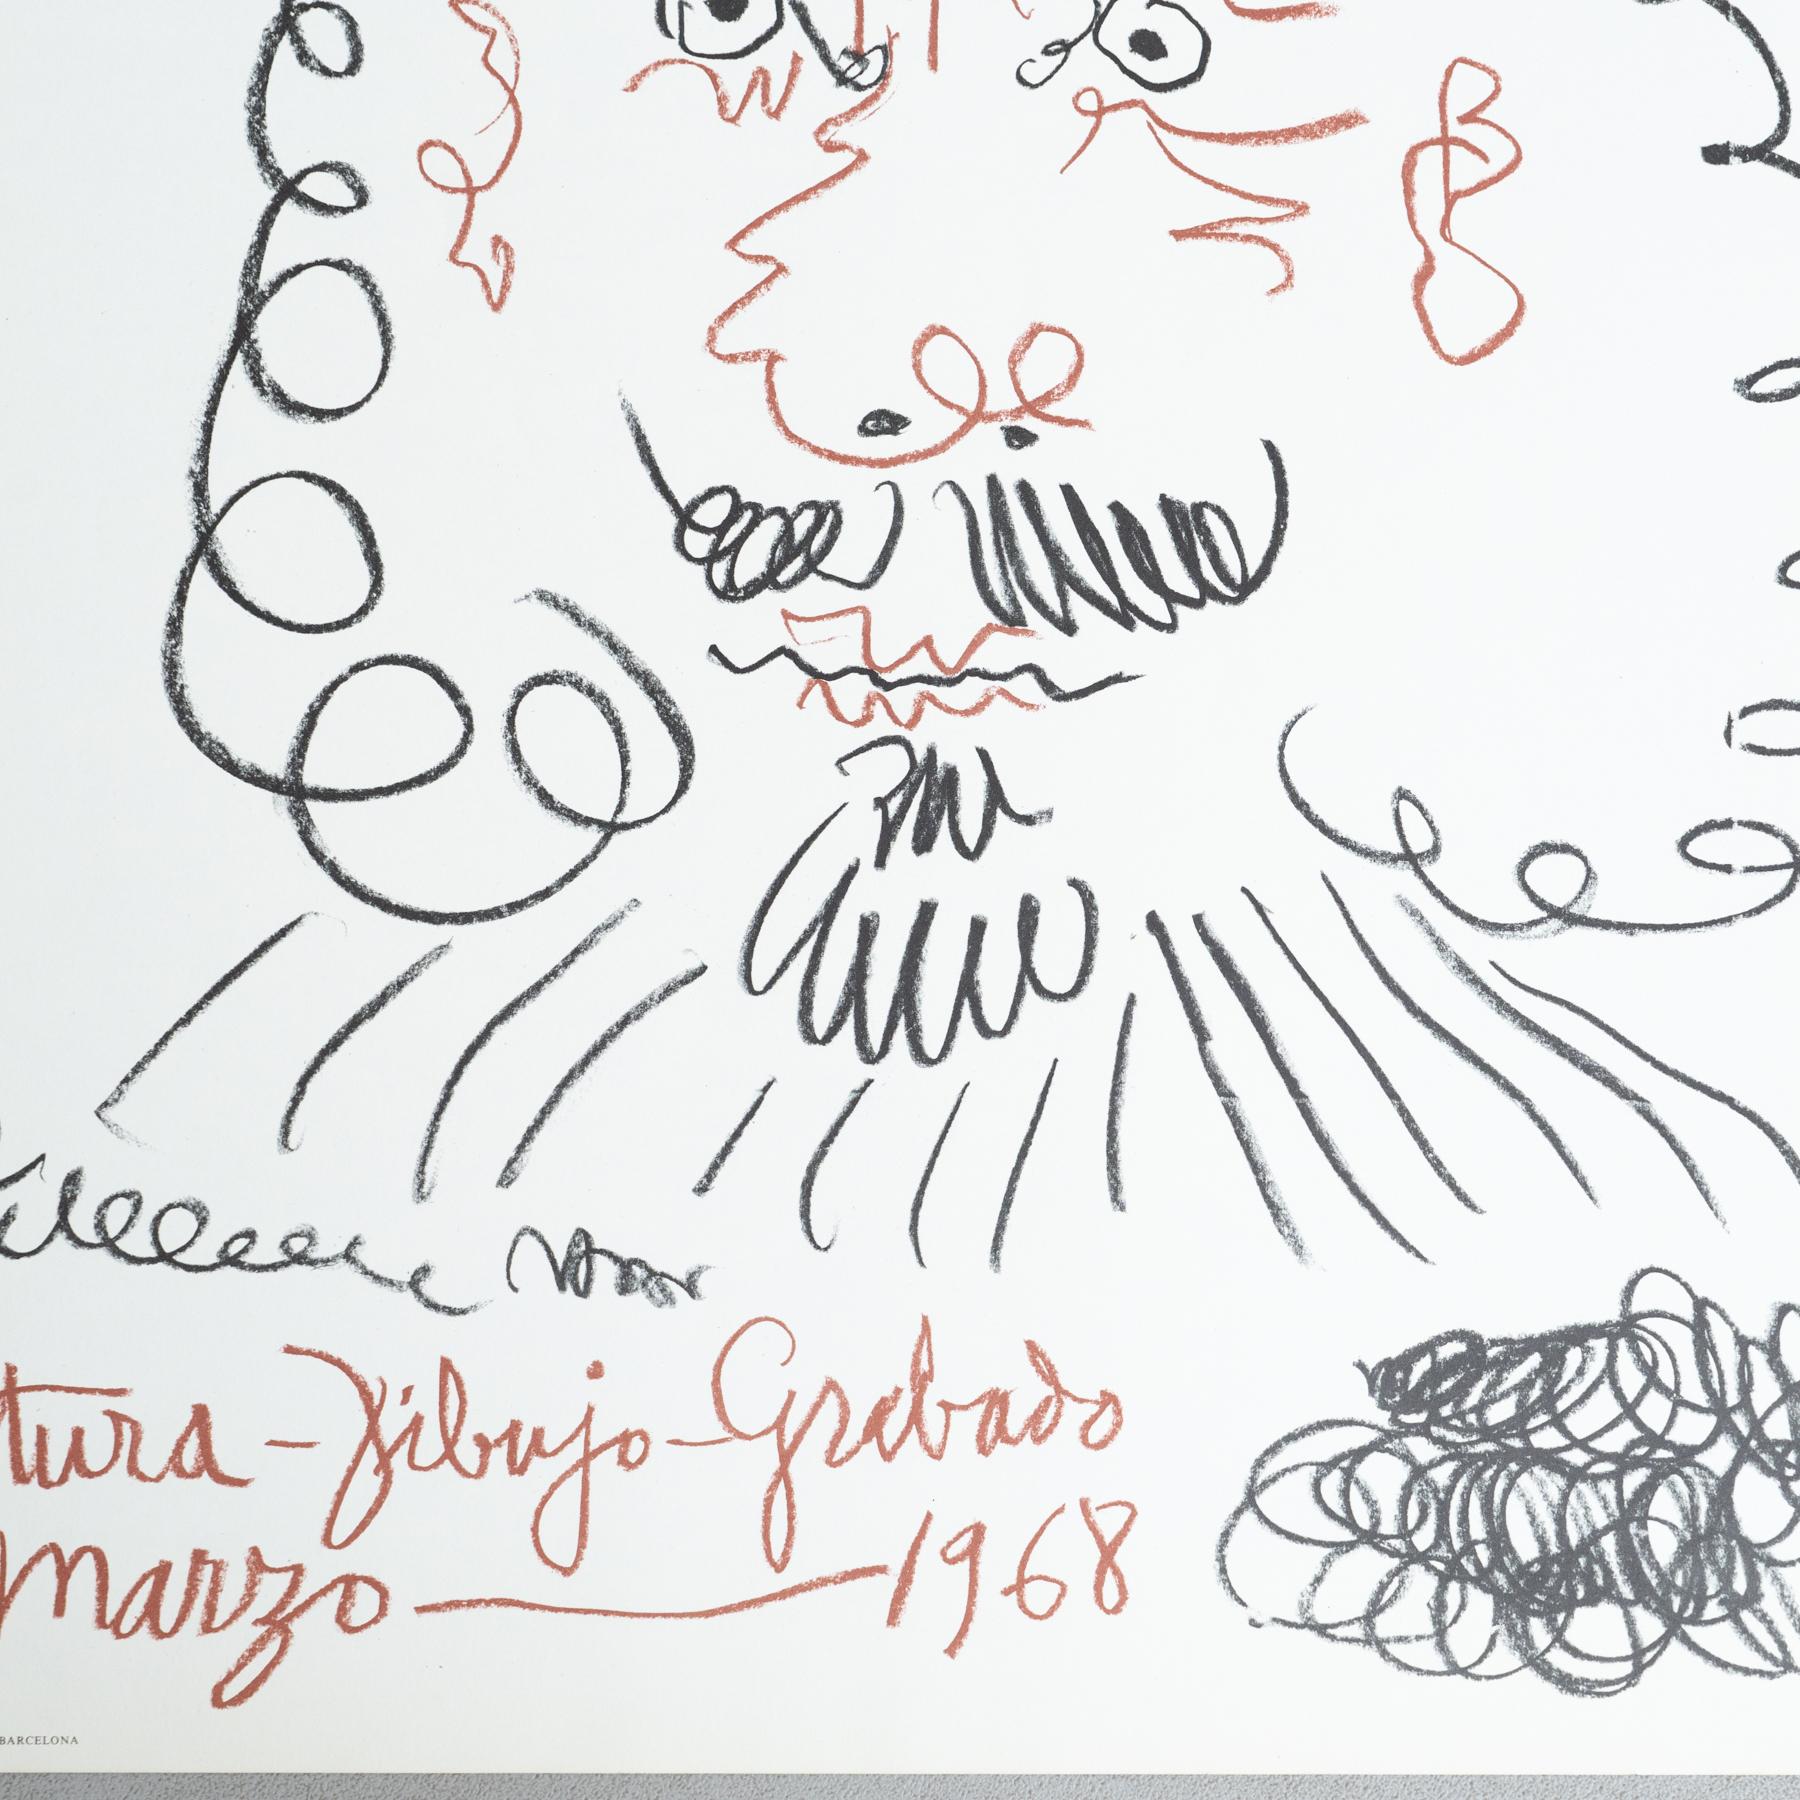 tura - Dibujo - Grabado
Marzo — 1968
BARCELONA